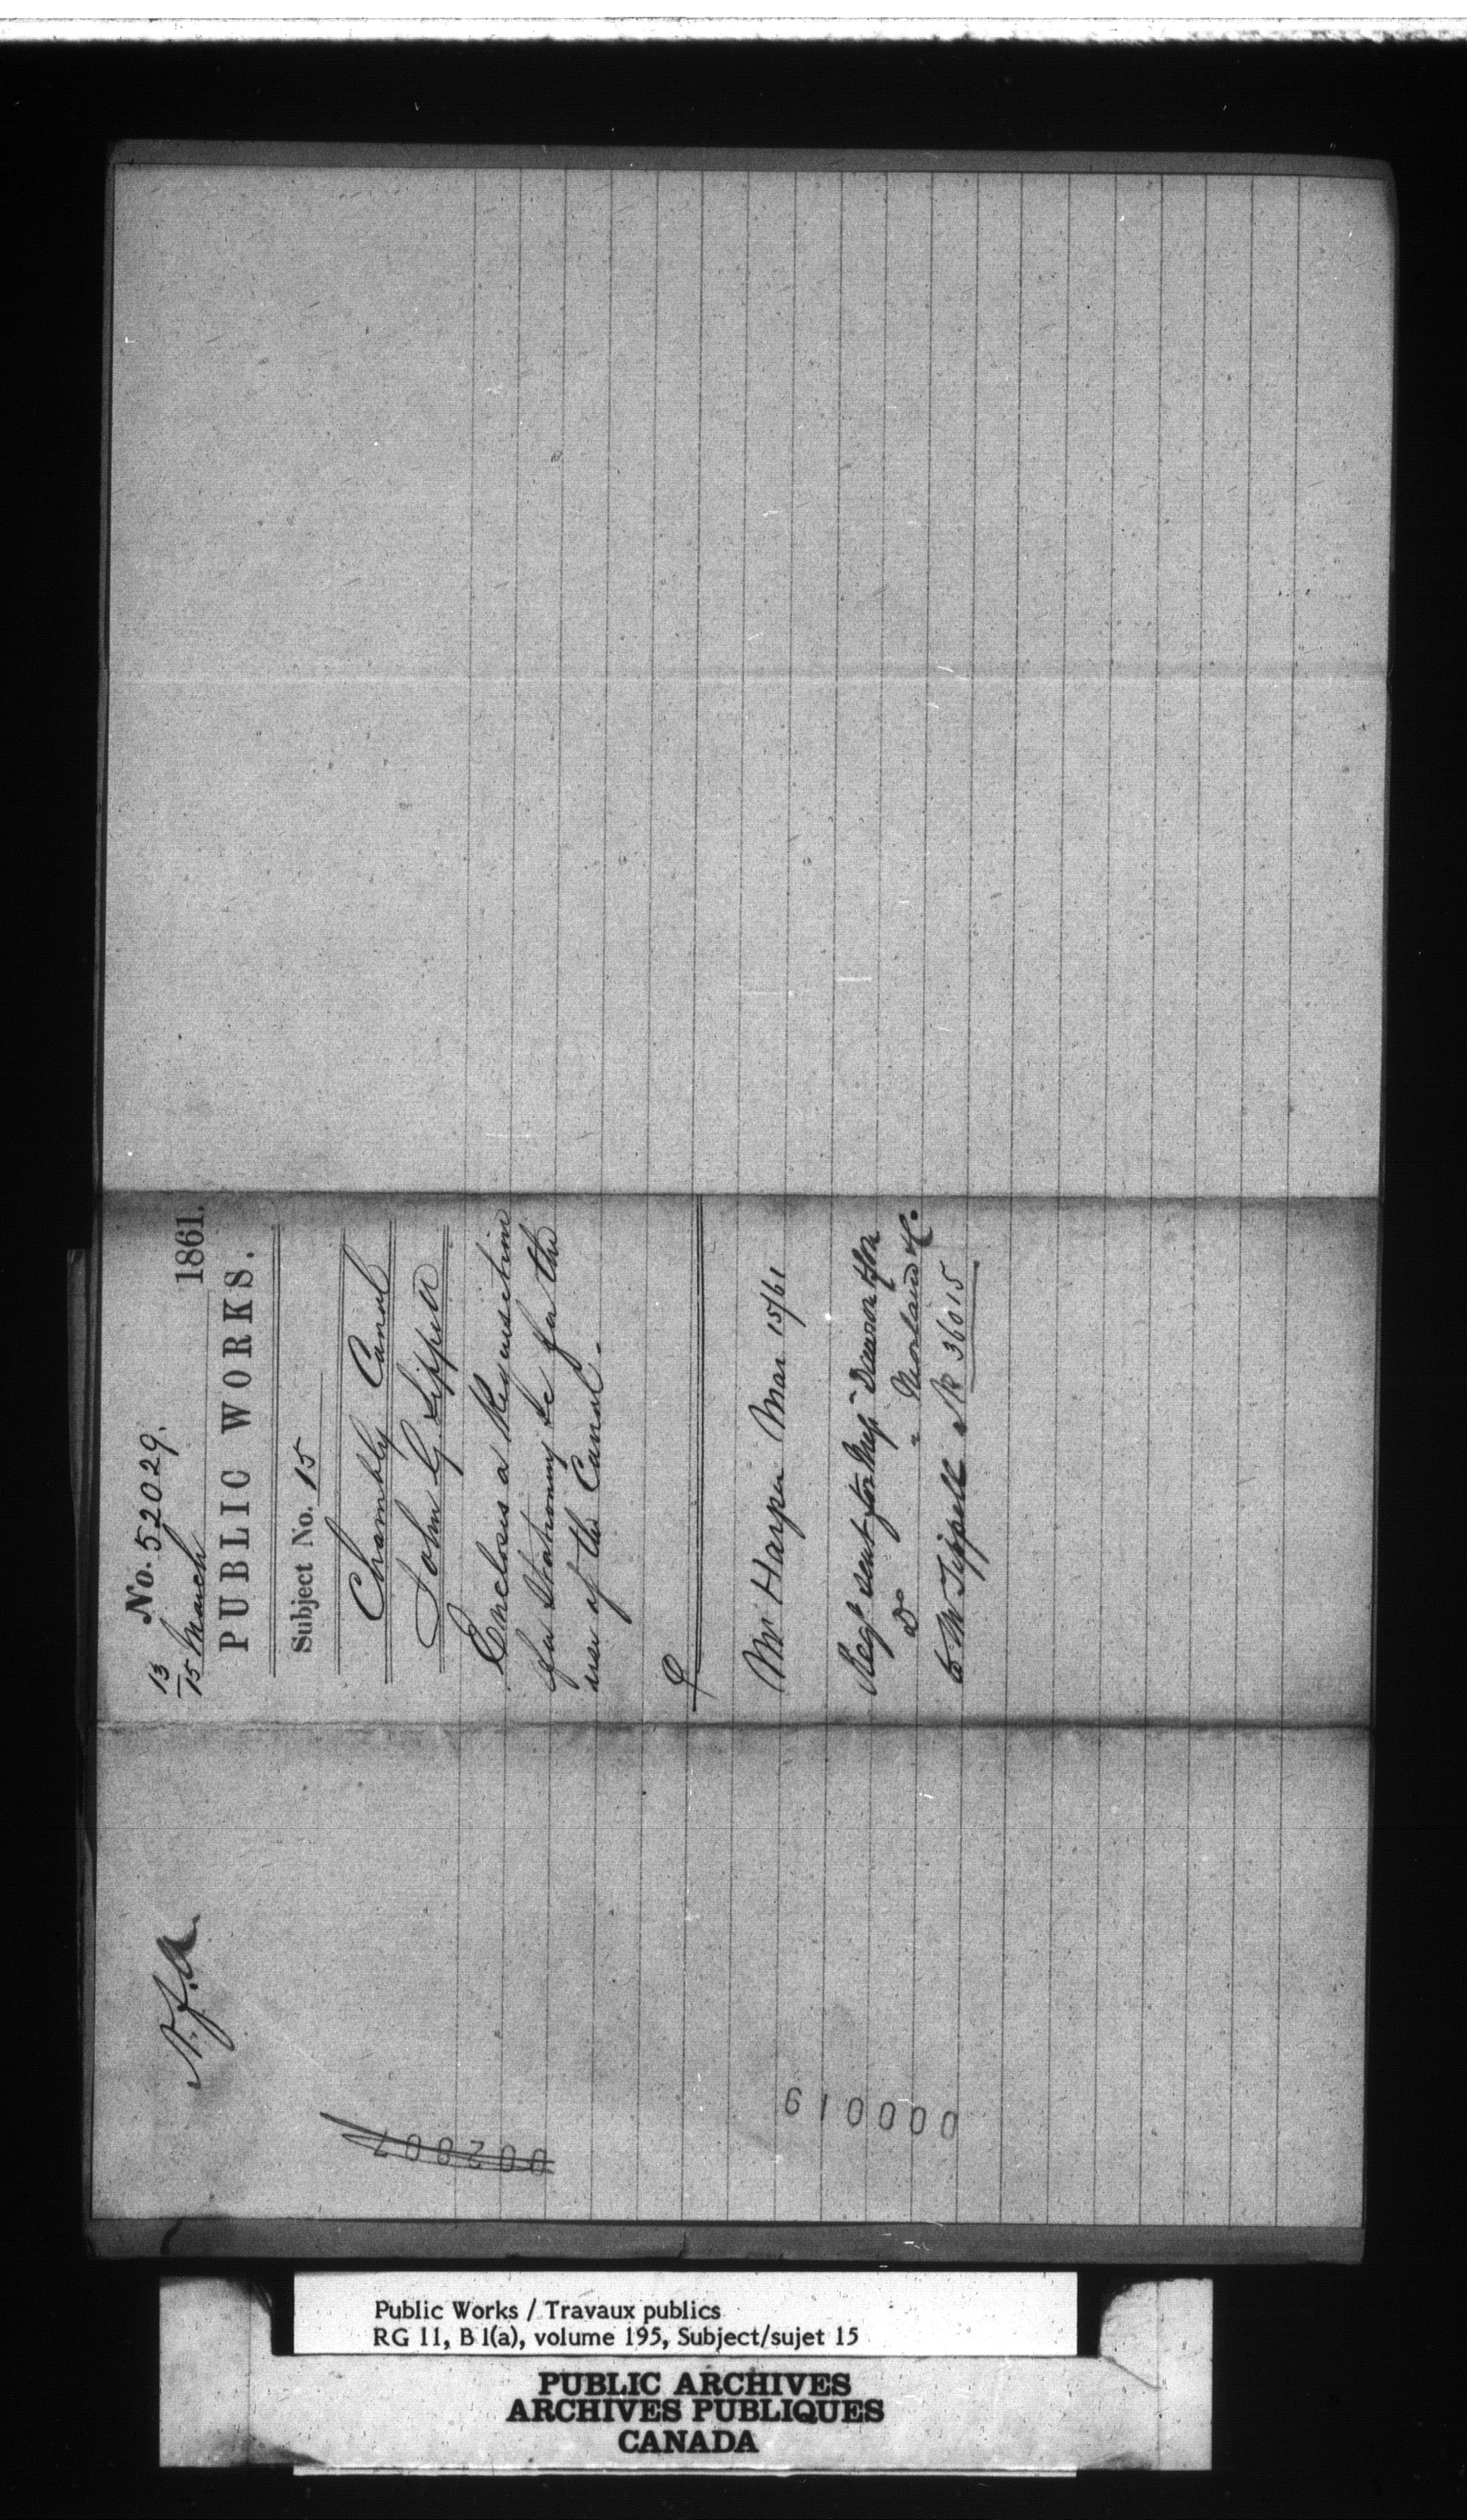 No. 52029.
13/15 March 1861.
PUBLIC WORKS.
Subject No. 15
Chambly Canal
John G. Sippell
Encloses a Requisition
for Stationery &c for the
use of the Canal.
Mr Harper Mar 15/61
Reqn sent for Messrs Dawson & Son
Do " Morland &c.
to Mr Sippell 36015
N.f.a.
002807
000019
Public Works / Travaux publics
RG 11, B 1(a), volume 195, Subject/sujet 15
PUBLIC ARCHIVES
ARCHIVES PUBLIQUES
CANADA